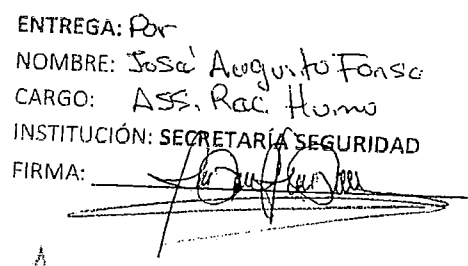 ENTREGA: Por
NOMBRE: José Augusto Fonsc
CARGO: Ass. Rac. Humo
INSTITUCIÓN: SECRETARÍA SEGURIDAD
FIRMA: